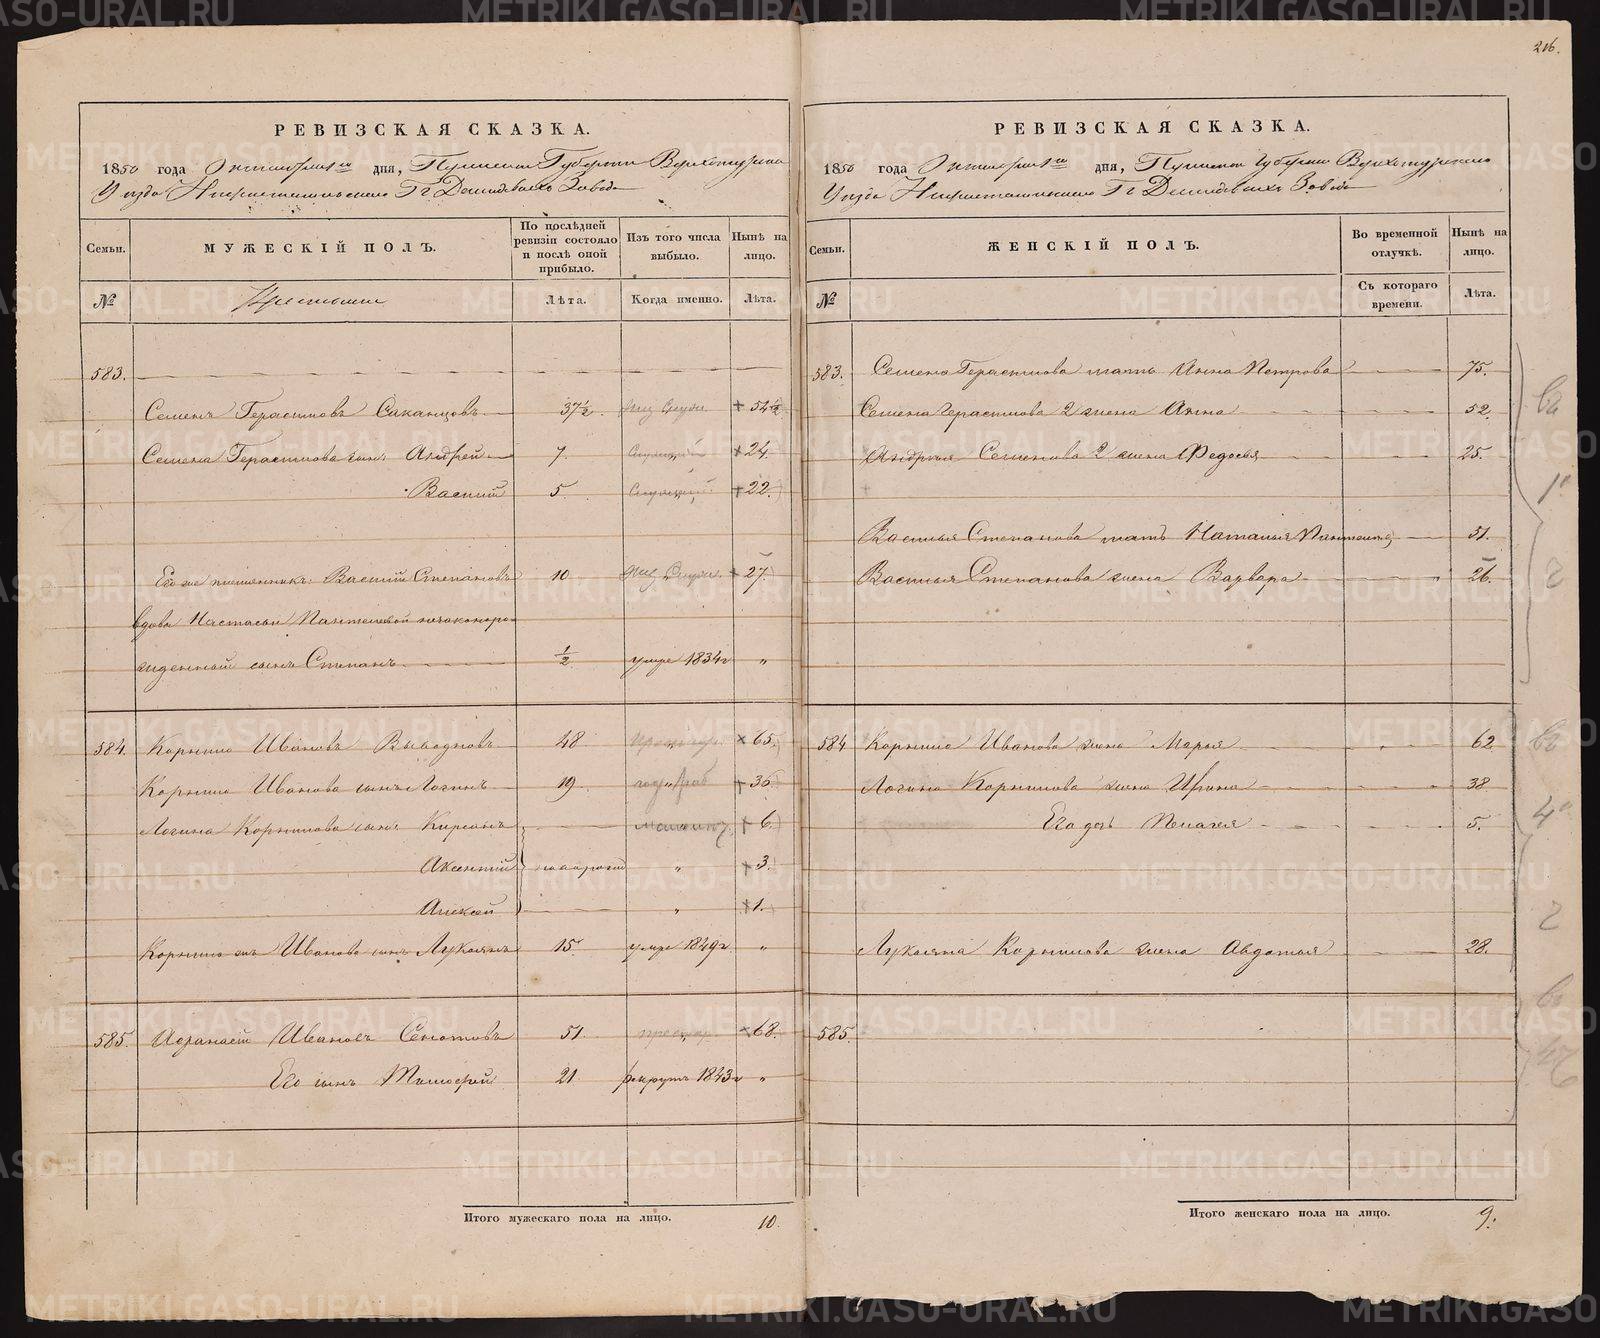 216.
РЕВИЗСКАЯ СКАЗКА.
1850 года Октября дня, Пермской Губернии Верхотурскаго
Уезда Нижнетагильскаго Гг Демидовыхъ Завода
Семьи. МУЖЕСКІЙ ПОЛЪ. По послѣдней ревизіи состояло и послѣ оной прибыло. Изъ того числа выбыло. Нынѣ на лицо.
№ Крестьяне Лѣта. Когда именно. Лѣта.
583.
Семенъ Герасимовъ 37½ 54½
Семена Герасимова сынъ Андрей 7. 24.
Василій 5. 22.
Его же племянникъ Василій Степановъ 10 27.
вдовы Настасьи незаконоро-
жденный сынъ Степанъ ½ умре 1834 г "
584. Корнило Ивановъ 48 65.
Корнило Иванова сынъ Логинъ 19 36
Логина Корнилова сын. Кирсанъ 6.
Аксентій новорожд " 3
Алексей " 1.
Корнило Иванова сынъ Лукоянъ 15 умре 1849 г "
585. Афанасій Ивановъ 51. 68.
Его сынъ Тимофей 21 рекрутъ 1843 г "
Итого мужескаго пола на лицо. 10.
РЕВИЗСКАЯ СКАЗКА.
1850 года Октября дня, Пермской Губерніи Верхотурскаго
Уезда Нижнетагильскаго Гг Демидовыхъ Завода
Семьи. ЖЕНСКІЙ ПОЛЪ. Во временной отлучкѣ. Нынѣ на лицо.
№ Съ котораго времени. Лѣта.
583. Семена Герасимова мать Анна Петрова 75.
Семена Герасимова 2 жена Анна 52.
Андрея Семенова 2 жена Федосья 25.
Василья Степанова мать Наталья 51.
Василья Степанова жена Варвара 26.
584 Корнило Иванова жена Марья 62
Логина Корнилова жена Ирина 38
Его дочь Пелагея 5.
Лукояна Корнилова жена Авдотья 28.
585.
Итого женскаго пола на лицо. 9.
METRIKI.GASO-URAL.RU